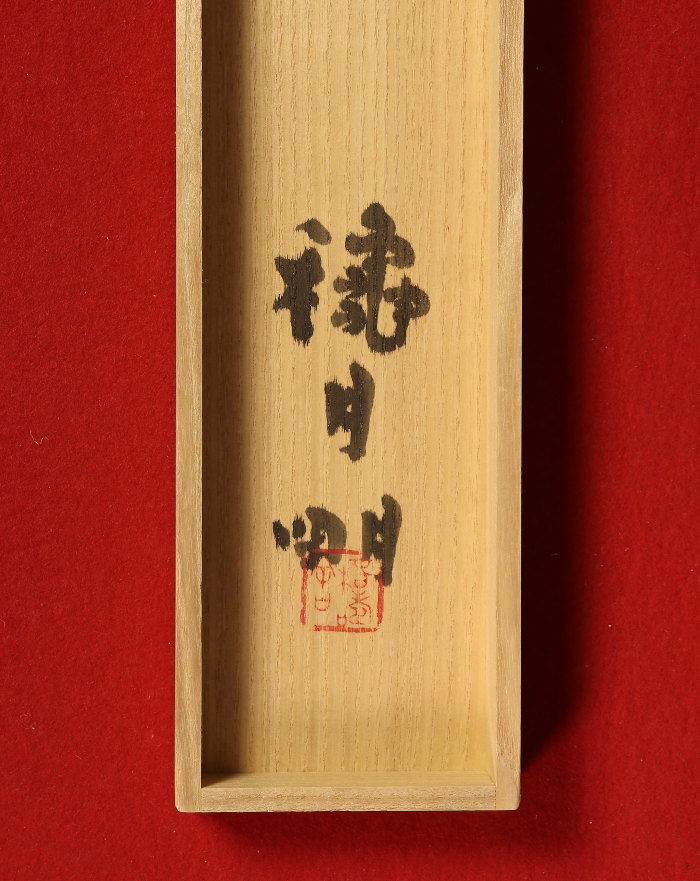 穐月明